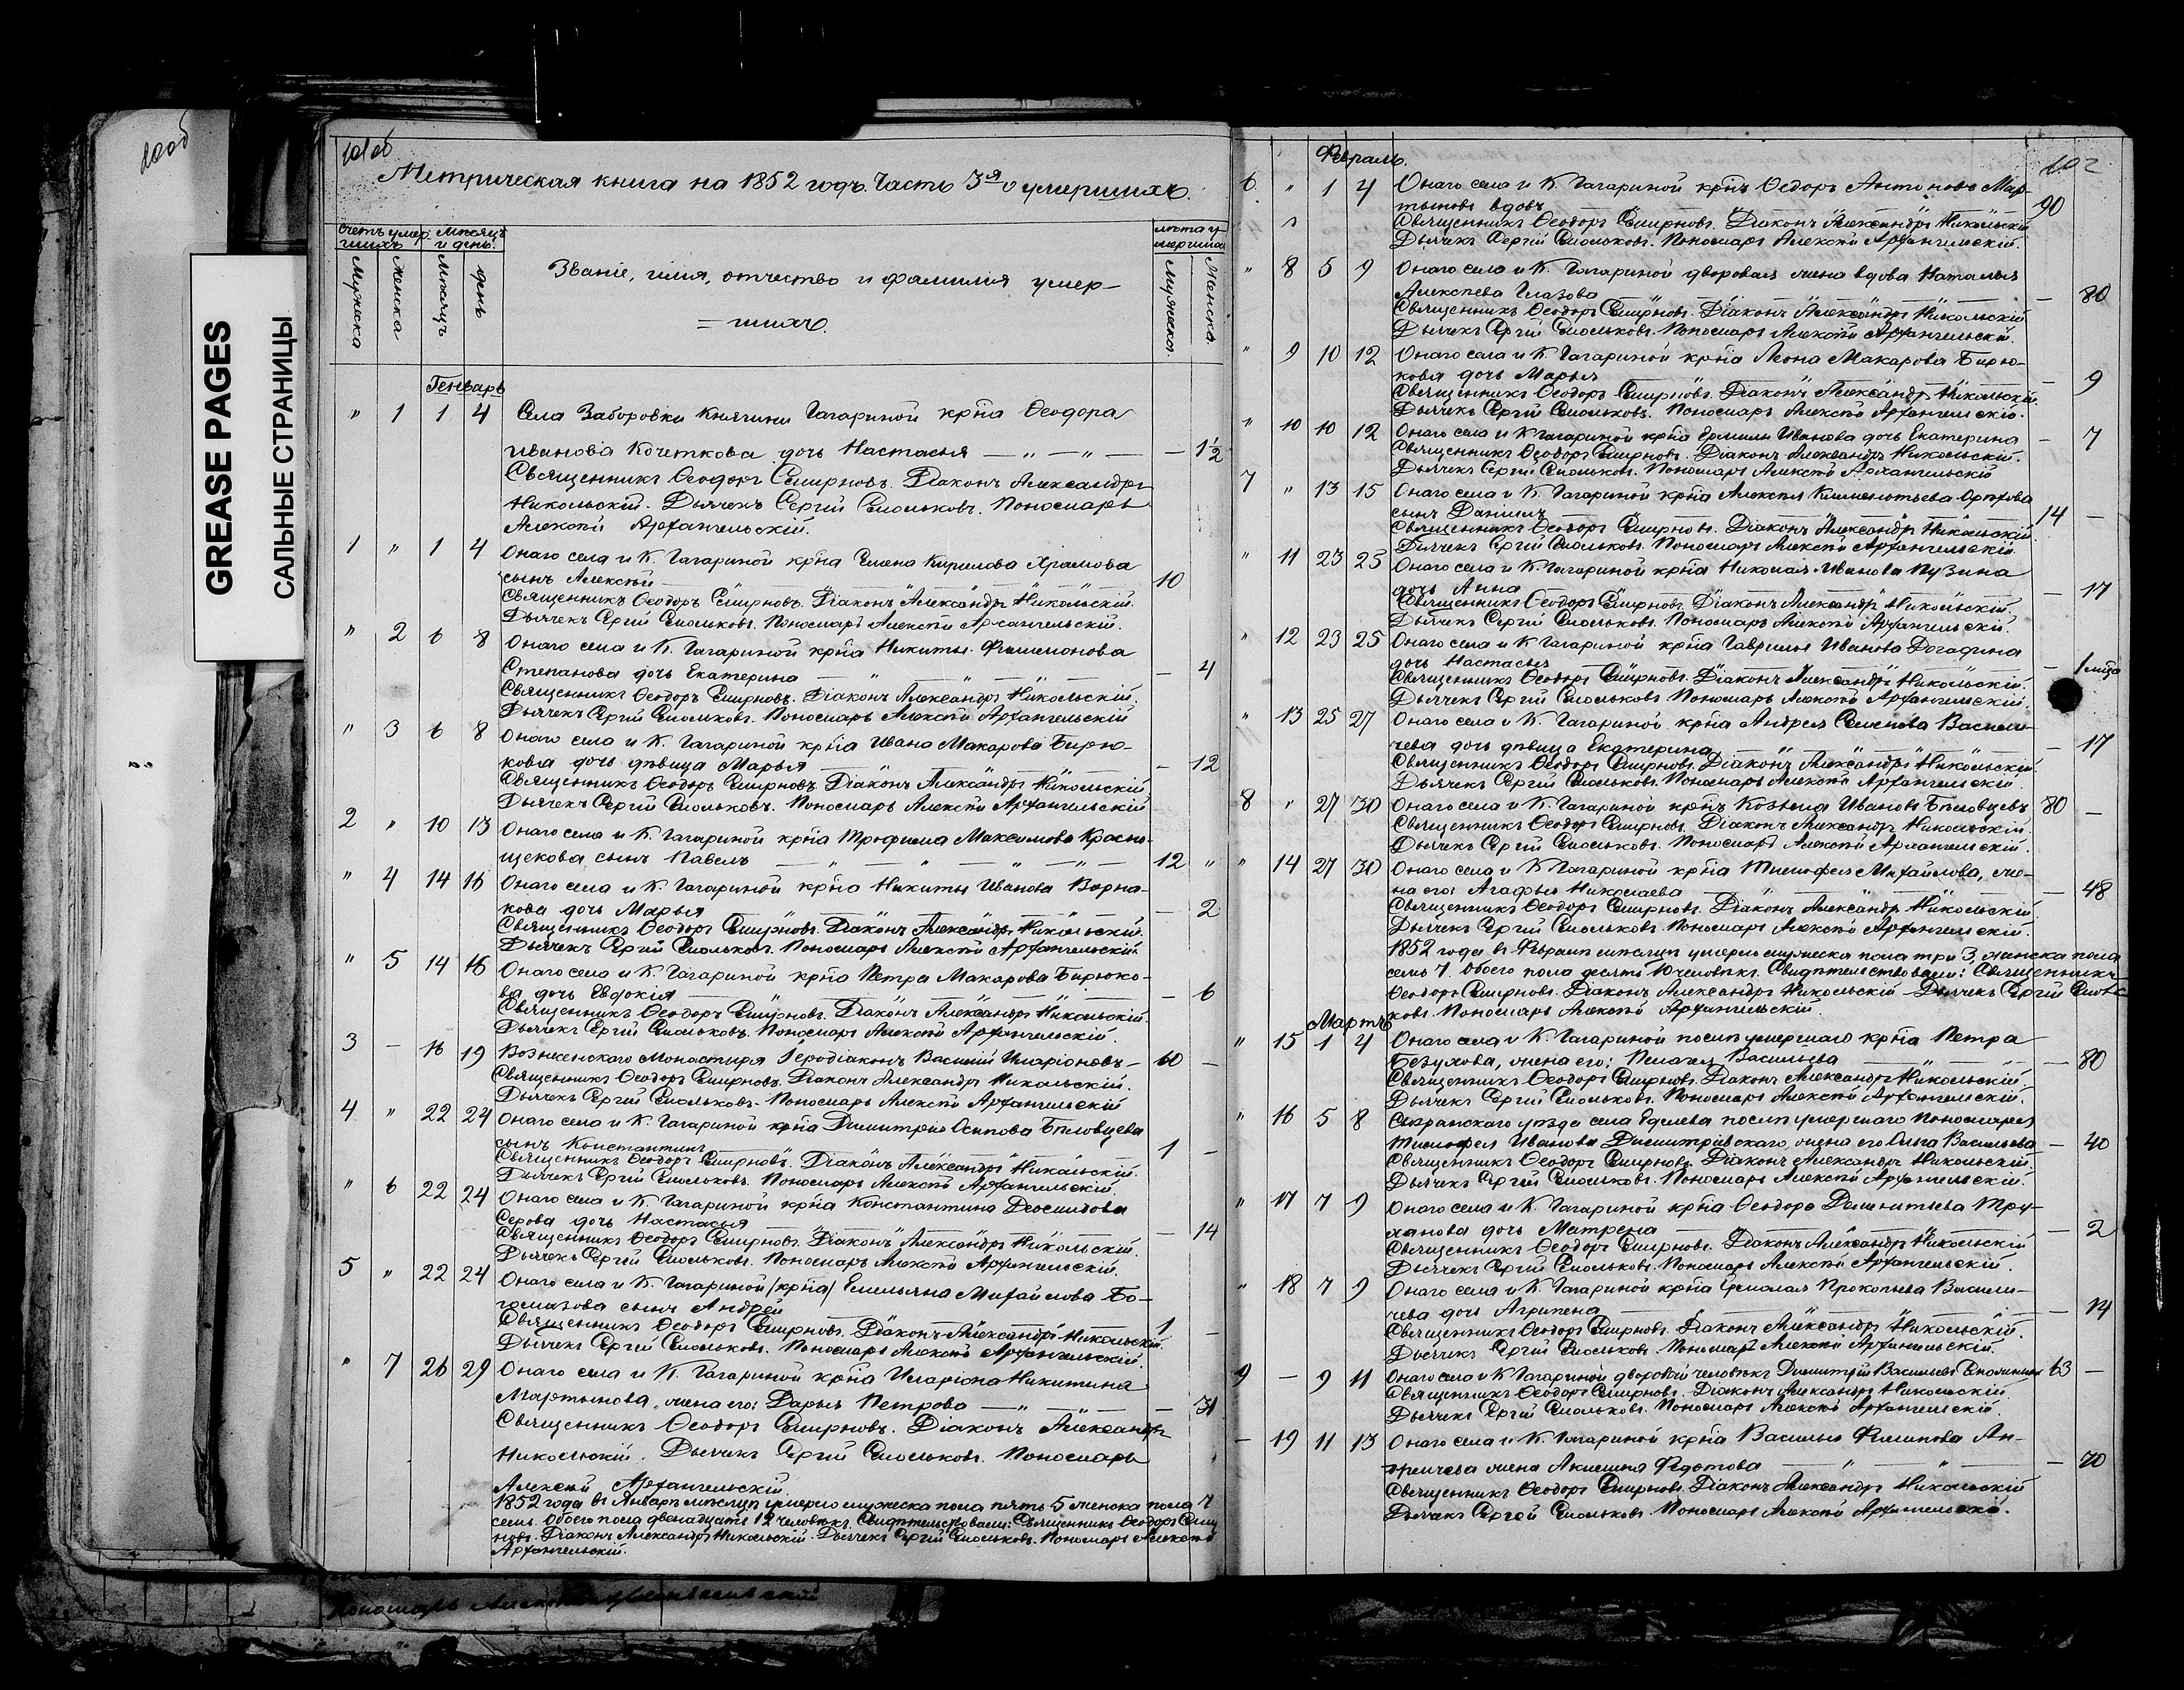 100об
GREASE PAGES
САЛЬНЫЕ СТРАНИЦЫ
101об
Метрическая книга на 1852 годъ. Часть 3я о умершихъ.
Счетъ умер-
шихъ
Мѣсяцъ
и день.
лѣта у-
мершихъ
Мужеска
Женска
Мѣсяцъ
день
Званіе, имя, отчество и фамилія умер-
= шихъ.
Мужеска.
Женска.
Генварь
" 1 1 4 Села Заборовки Княгини Гагариной крн̃а Ѳеодора
Иванова Кочеткова дочь Настасья — " — " — — 1½
Священникъ Ѳеодоръ Смирновъ. Діаконъ Александръ
Никольскій. Дьячекъ Сергій Смольковъ. Пономарь
Алексѣй Архангельскій.
1 " 1 4 Онаго села и К. Гагариной крн̃а Семена Кирилова Храмова
сынъ Алексѣй 10
Священникъ Ѳеодоръ Смирновъ. Діаконъ Александръ Никольскій.
Дьячекъ Сергій Смольковъ. Пономарь Алексѣй Архангельскій.
" 2 6 8 Онаго села и К. Гагариной крн̃а Никиты Филимонова
Степанова дочь Екатерина — 4
Священникъ Ѳеодоръ Смирновъ. Діаконъ Александръ Никольскій.
Дьячекъ Сергій Смольковъ. Пономарь Алексѣй Архангельскій
" 3 6 8 Онаго села и К. Гагариной крн̃а Ивана Макарова Бирю-
кова дочь дѣвица Марья — 12
Священникъ Ѳеодоръ Смирновъ. Діаконъ Александръ Никольскій
Дьячекъ Сергій Смольковъ. Пономарь Алексѣй Архангельскій
2 " 10 13 Онаго села и К. Гагариной крн̃а Трофима Максимова Красно-
щекова сынъ Павелъ — " — " — 12 "
" 4 14 16 Онаго села и К. Гагариной крн̃а Никиты Иванова Ворна-
кова дочь Марья — 2
Священникъ Ѳеодоръ Смирновъ. Діаконъ Александръ Никольскій.
Дьячекъ Сергій Смольковъ. Пономарь Алексѣй Архангельскій.
" 5 14 16 Онаго села и К. Гагариной крн̃а Петра Макарова Бирюко-
ва дочь Евдокія — 6
Священникъ Ѳеодоръ Смирновъ. Діаконъ Александръ Никольскій.
Дьячекъ Сергій Смольковъ. Пономарь Алексѣй Архангельскій.
3 — 16 19 Вознесенскаго Монастыря Іеродіаконъ Василій Иларіоновъ — 60 —
Священникъ Ѳеодоръ Смирновъ. Діаконъ Александръ Никольскій.
Дьячекъ Сергій Смольковъ. Пономарь Алексѣй Архангельскій
4 " 22 24 Онаго села и К. Гагариной крн̃а Димитрія Осипова Бѣловцева
сынъ Константинъ 1 —
Священникъ Ѳеодоръ Смирновъ. Діаконъ Александръ Никольскій.
Дьячекъ Сергій Смольковъ. Пономарь Алексѣй Архангельскій.
" 6 22 24 Онаго села и К. Гагариной крн̃а Константина Деомидова
Серова дочь Настасья — 14
Священникъ Ѳеодоръ Смирновъ. Діаконъ Александръ Никольскій.
Дьячекъ Сергій Смольковъ. Пономарь Алексѣй Архангельскій.
5 " 22 24 Онаго села и К. Гагариной /крн̃а/ Емельяна Михайлова Бо-
гомазова сынъ Андрей 1 —
Священникъ Ѳеодоръ Смирновъ. Діаконъ Александръ Никольскій.
Дьячекъ Сергій Смольковъ. Пономарь Алексѣй Архангельскій.
" 7 26 29 Онаго села и К. Гагариной крн̃а Иларіона Никитина
Мартынова, жена его: Дарья Петрова — " — — 31
Священникъ Ѳеодоръ Смирновъ. Діаконъ Александръ
Никольскій. Дьячекъ Сергій Смольковъ. Пономарь
Алексѣй Архангельскій.
1852 года въ Январѣ мѣсяцѣ умерло мужеска пола пять 5 женска пола 7
семь. Обоего пола двенадцать 12 человѣкъ. Свидѣтельствовали: Священникъ Ѳеодоръ Смир
новъ. Діаконъ Александръ Никольскій. Дьячекъ Сергій Смольковъ. Пономарь Алексѣй
Архангельскій.
102
Февраль.
6 " 1 4 Онаго села и К. Гагариной крн̃ъ Ѳедоръ Антоновъ Мар-
тыновъ вдовъ 90
Священникъ Ѳеодоръ Смирновъ. Діаконъ Александръ Никольскій
Дьячекъ Сергій Смольковъ. Пономарь Алексѣй Архангельскій.
" 8 5 9 Онаго села и К. Гагариной дворовая жена вдова Наталья
Алексѣева Глазова — 80
Священникъ Ѳеодоръ Смирновъ. Діаконъ Александръ Никольскій
Дьячекъ Сергій Смольковъ. Пономарь Алексѣй Архангельскій.
" 9 10 12 Онаго села и К. Гагариной крн̃а Леона Макарова Бирю-
кова дочь Марья — 9
Священникъ Ѳеодоръ Смирновъ. Діаконъ Александръ Никольскій.
Дьячекъ Сергій Смольковъ. Пономарь Алексѣй Архангельскій.
" 10 10 12 Онаго села и К Гагариной крн̃а Ермилы Иванова дочь Екатерина — 7
Священникъ Ѳеодоръ Смирновъ. Діаконъ Александръ Никольскій.
Дьячекъ Сергій Смольковъ. Пономарь Алексѣй Архангельскій
7 " 13 15 Онаго села и К. Гагариной крн̃а Алексѣя Климентьева Орѣхова
сынъ Даніилъ 14 —
Священникъ Ѳеодоръ Смирновъ. Діаконъ Александръ Никольскій.
Дьячекъ Сергій Смольковъ. Пономарь Алексѣй Архангельскій.
" 11 23 25 Онаго села и К. Гагариной крн̃а Николая Иванова Пузина
дочь Анна — 17
Священникъ Ѳеодоръ Смирновъ. Діаконъ Александръ Никольскій.
Дьячекъ Сергій Смольковъ. Пономарь Алексѣй Архангельскій.
" 12 23 25 Онаго села и К Гагариной крн̃а Гаврилы Иванова Догадина
дочь Настасья — 1 мѣсца
Священникъ Ѳеодоръ Смирновъ. Діаконъ Александръ Никольскій.
Дьячекъ Сергій Смольковъ. Пономарь Алексѣй Архангельскій.
" 13 25 27 Онаго села и К. Гагариной крн̃а Андрея Семенова Васили-
чева дочь дѣвица Екатерина — 17
Священникъ Ѳеодоръ Смирновъ. Діаконъ Александръ Никольскій.
Дьячекъ Сергій Смольковъ. Пономарь Алексѣй Архангельскій.
8 " 27 30 Онаго села и К. Гагариной крн̃ъ Козьма Ивановъ Бѣловцевъ 80 —
Священникъ Ѳеодоръ Смирновъ. Діаконъ Александръ Никольскій.
Дьячекъ Сергій Смольковъ. Пономарь Алексѣй Архангельскій.
" 14 27 30 Онаго села и К Гагариной крн̃а Тимофея Михайлова, же-
на его: Агафья Николаева — 48
Священникъ Ѳеодоръ Смирновъ. Діаконъ Александръ Никольскій
Дьячекъ Сергій Смольковъ. Пономарь Алексѣй Архангельскій.
1852 года въ Февралѣ мѣсяцѣ умерло мужеска пола три 3 женска пола
семь 7. Обоего пола десять 10 человѣкъ. Свидѣтельствовали: Священникъ
Ѳеодоръ Смирновъ. Діаконъ Александръ Никольскій Дьячекъ Сергій Смоль-
ковъ. Пономарь Алексѣй Архангельскій.
Мартъ
" 15 1 4 Онаго села и К. Гагариной послѣ умершаго крн̃а Петра
Безухова, жена его: Пелагея Васильева — 80
Священникъ Ѳеодоръ Смирновъ. Діаконъ Александръ Никольскій.
Дьячекъ Сергій Смольковъ. Пономарь Алексѣй Архангельскій.
" 16 5 8 Сызранскаго уѣзда села Едилева послѣ умершаго пономаря
Тимофея Иванова Димитріевскаго, жена его Ольга Васильева — 40
Священникъ Ѳеодоръ Смирновъ. Діаконъ Александръ Никольскій.
Дьячекъ Сергій Смольковъ. Пономарь Алексѣй Архангельскій.
" 17 7 9 Онаго села и К. Гагариной крн̃а Ѳеодора Дементьева Тру-
ханова дочь Матрена — 2
Священникъ Ѳеодоръ Смирновъ. Діаконъ Александръ Никольскій
Дьячекъ Сергій Смольковъ. Пономарь Алексѣй Архангельскій.
" 18 7 9 Онаго села и К. Гагариной крн̃а Ермолая Прокопьева Васили-
чева дочь Агрипена — 14
Священникъ Ѳеодоръ Смирновъ. Діаконъ Александръ Никольскій.
Дьячекъ Сергій Смольковъ. Пономарь Алексѣй Архангельскій.
9 — 9 11 Онаго села и К Гагариной дворовой человѣкъ Димитрій Васильевъ 63 —
Священникъ Ѳеодоръ Смирновъ. Діаконъ Александръ Никольскій.
Дьячекъ Сергій Смольковъ. Пономарь Алексѣй Архангельскій.
— 19 11 13 Онаго села и К. Гагариной крн̃а Василья Филипова Ан-
дреичева жена Акилина Федотова — " — " — — 70
Священникъ Ѳеодоръ Смирновъ. Діаконъ Александръ Никольскій
Дьячекъ Сергѣй Смольковъ. Пономарь Алексѣй Архангельскій.
Пономарь Алексѣй Архангельскій